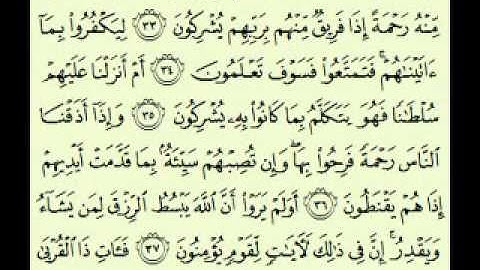 مِّنْهُ رَحْمَةً إِذَا فَرِيقٌ مِّنْهُم بِرَبِّهِمْ يُشْرِكُونَ ٣٣ لِيَكْفُرُوا۟ بِمَآ
ءَاتَيْنَٰهُمْ ۚ فَتَمَتَّعُوا۟ فَسَوْفَ تَعْلَمُونَ ٣٤ أَمْ أَنزَلْنَا عَلَيْهِمْ
سُلْطَٰنًا فَهُوَ يَتَكَلَّمُ بِمَا كَانُوا۟ بِهِۦ يُشْرِكُونَ ٣٥ وَإِذَآ أَذَقْنَا
ٱلنَّاسَ رَحْمَةً فَرِحُوا۟ بِهَا ۖ وَإِن تُصِبْهُمْ سَيِّئَةٌۢ بِمَا قَدَّمَتْ أَيْدِيهِمْ
إِذَا هُمْ يَقْنَطُونَ ٣٦ أَوَلَمْ يَرَوْا۟ أَنَّ ٱللَّهَ يَبْسُطُ ٱلرِّزْقَ لِمَن يَشَآءُ
وَيَقْدِرُ ۚ إِنَّ فِى ذَٰلِكَ لَءَايَٰتٍ لِّقَوْمٍ يُؤْمِنُونَ ٣٧ فَـَٔاتِ ذَا ٱلْقُرْبَىٰ